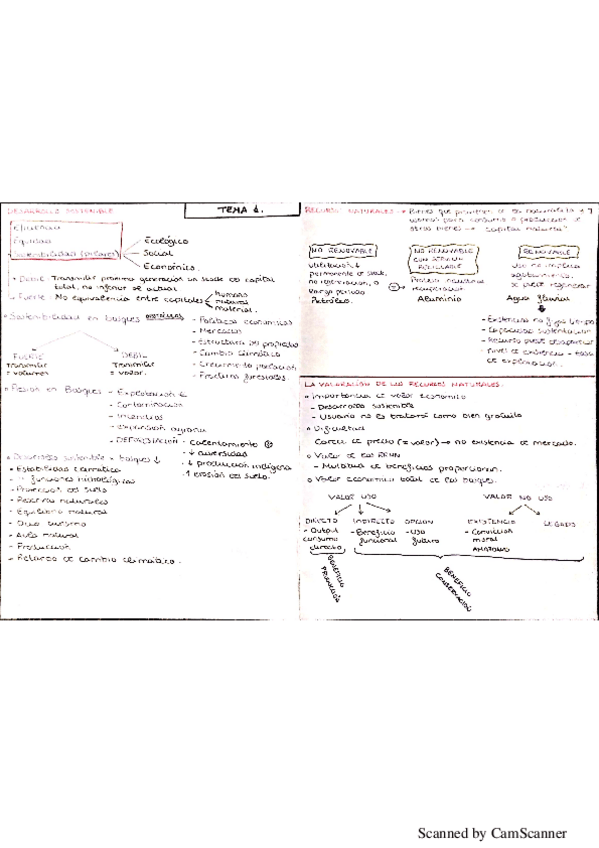 DESARROLLO SOSTENIBLE
TEMA 1.
Eficiencia
Equidad
Sostenibilidad (pilares)
Ecológico
Social
Económico.
Débil: Transmitir próxima generación un stock de capital
total, no inferior al actual
Fuerte: No equivalencia entre capitales
Humanos
natural
material.
Sostenibilidad en bosques
OBSTÁCULOS
- Políticas económicas
- Mercados
- Estructura de propiedad
- Cambio climático
- Crecimiento población
- Productos forestales.
FUERTE
Transmitir
= volumen
DÉBIL
Transmitir
= valor.
Presión en Bosques
- Explotación
- Contaminación
- Incendios
- expansión agraria
- DEFORESTACIÓN
- calentamiento
- ↓ diversidad
- ↓ producción indígena
↑ erosión del suelo.
Desarrollo sostenible - bosques ↓
- Estabilidad climática
- funciones hidrológicas
- Protección del suelo
- Reservas naturales
- Equilibrio natural
- Ocio turismo
- Aula natural
- Producción
- Retardo de cambio climático.
RECURSOS NATURALES → Bienes que provienen de la naturaleza y
para consumo o producción de
otros bienes → "capital natural"
NO RENOVABLE
Utilización ↓
permanente de stock,
no regeneración, o
largo periodo
Petróleo.
NO RENOVABLE
CON SERVICIO
RECICLABLE
Proceso industrial
recuperación
Aluminio
RENOVABLE
Uso no implica
agotamiento.
se puede regenerar
Agua, fauna
- Existencias no fijas tiempo
- Capacidad sustentación
- Recurso puede desaparecer
- Nivel de existencia - tasa
de explotación.
LA VALORACIÓN DE LOS RECURSOS NATURALES.
Importancia de valor económico
- Desarrollo sostenible
- Usuario no es tratarlo como bien gratuito
Dificultad
Carece de precio (≠ valor) → no existencia de mercado.
Valor de los RRNN
- Multitud de beneficios proporcionan.
Valor económico total de los bosques.
VALOR USO
VALOR NO USO
DIRECTO
- Output
consumo
directo
INDIRECTO
- Beneficio
funcional
OPCIÓN
- Uso
futuro
EXISTENCIA
- Convicción
moral
LEGADO
BENEFICIO
PRODUCCIÓN
BENEFICIO
CONSERVACIÓN
Scanned by CamScanner